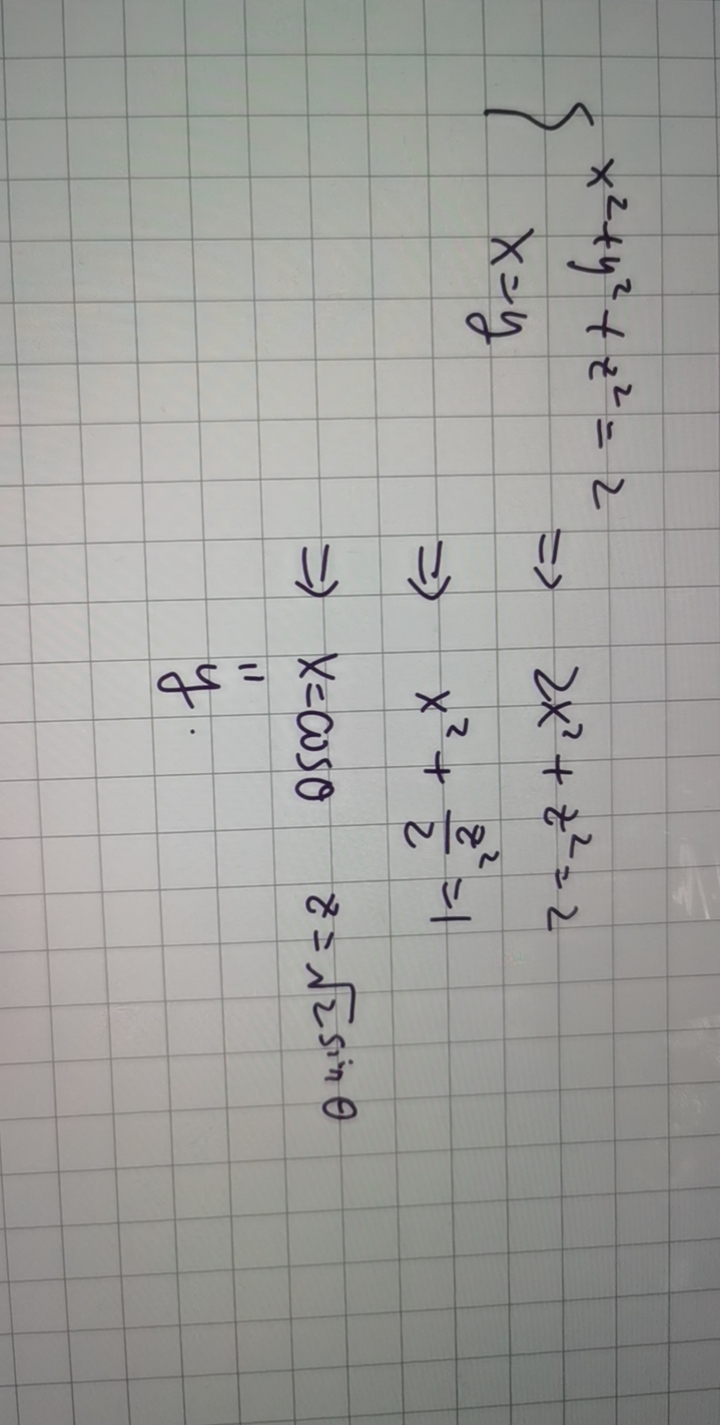 { x² + y² + z² = 2
x = y
⇒ 2x² + z² = 2
⇒ x² + z²/2 = 1
⇒ x = cosθ z = √2 sinθ
=
y.